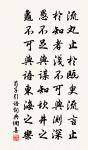 流丸止於甌臾流言止
於知者淺不可與測深
愚不足與謀知坎井之
鼃不可與語東海之樂
荀子引語